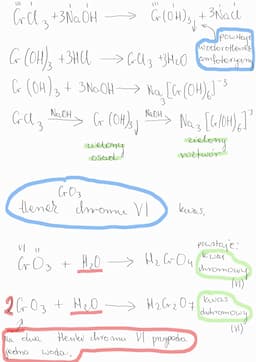 CrCl₃ + 3NaOH → Cr(OH)₃↓ + 3NaCl
powstaje wodorotlenek amfoteryczny
Cr(OH)₃ + 3HCl → CrCl₃ + 3H₂O
Cr(OH)₃ + 3NaOH → Na₃[Cr(OH)₆]⁻³
CrCl₃ NaOH → Cr(OH)₃↓ NaOH → Na₃[Cr(OH)₆]⁻³
zielony osad
zielony roztwór
CrO₃
tlenek chromu VI
kwas.
powstaje:
VI II
CrO₃ + H₂O → H₂CrO₄ kwas chromowy (VI)
2CrO₃ + H₂O → H₂Cr₂O₇ kwas dichromowy (VI)
na dwa tlenki chromu VI przypada
jedna woda.